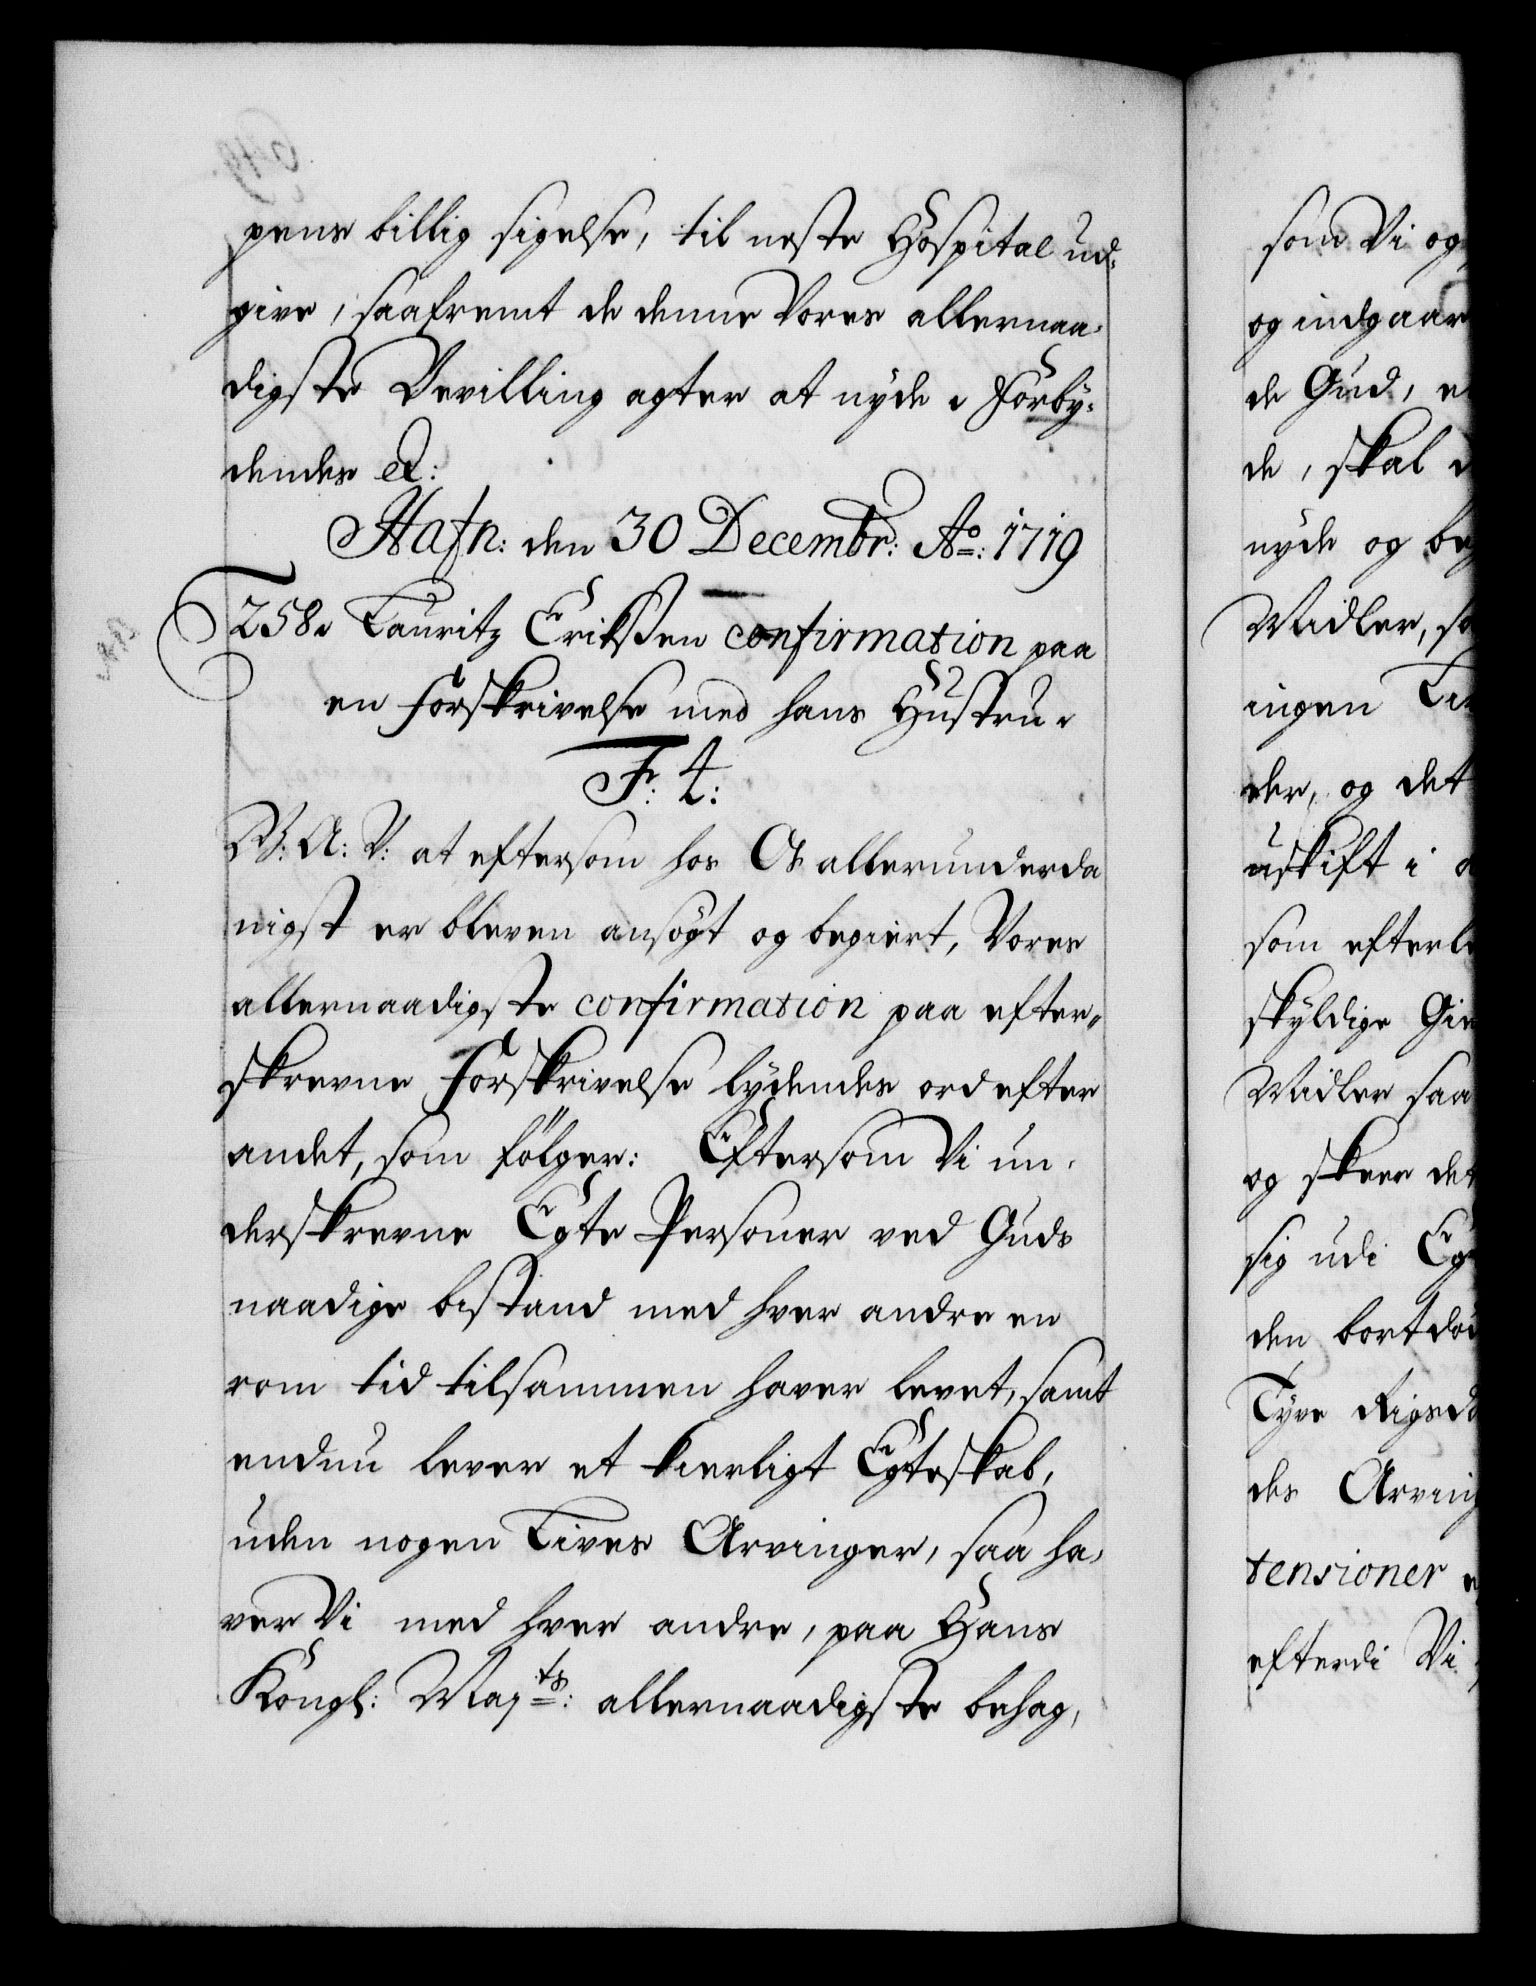 pens billig sigelse, til neste Hospital ud-
give, saafremt de denne Vores allernaa-
digste Bevilling agter at nyde. Forby-
dendes &:
Hafn: den 30 Decembr: Ao: 1719
258. Lauritz Erikßen confirmation paa
en Forskrivelse med hans Hustru.
F: 4:
G: A: V: at eftersom hos Os allerunderda
nigst er bleven ansøgt og begiert, Vores
allernaadigste confirmation paa efter-
skrevne Forskrivelse lydendes ord efter
andet, som følger: Eftersom Vi un-
derskrevne Egte Personer ved Guds
naadige bistand med hver andre en
rom tid tilsammen haver levet, samt
endnu lever et kierligt Egteskab,
uden nogen Lives Arvinger, saa ha-
ver Vi med hver andre, paa Hans
Kongl: Majts: allernaadigste behag,
som Vi og
og indgaar
de Gud, e
de, skal
nyde og be
Midler, so
ingen Li
der, og det
uskift i
som efterle
skyldige Gie
Midler saa
og skeer det
sig udi Eg
den bortdø
Tyve Rigsd
des Arving
tensioner
efterdi Vi